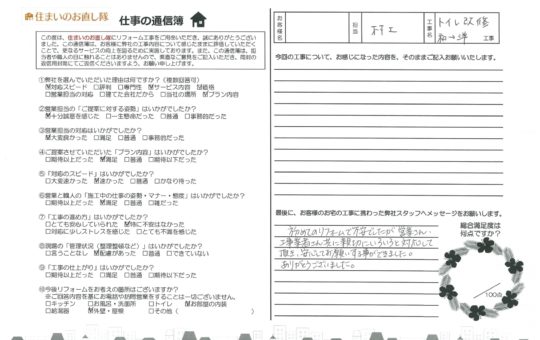 住まいのお直し隊
仕事の通信簿
この度は、住まいのお直し隊にリフォーム工事をご用命いただき、誠にありがとうございました。
①弊社を選んでいただいた理由は何ですか？（複数回答可）
☑対応スピード □評判 □専門性 ☑サービス内容 ☑価格
□営業担当の対応 □建てた会社だから □当社の場所 ☑プラン内容
②営業担当の「ご提案に対する姿勢」はいかがでしたか？
☑十分誠意を感じた □一生懸命だった □普通 □事務的だった
③営業担当の対応はいかがでしたか？
☑大変良かった □満足 □普通 □不満だった
④ご提案させていただいた「プラン内容」はいかがでしたか？
□期待以上だった ☑満足 □普通 □期待以下だった
⑤「対応のスピード」はいかがでしたか？
□大変速かった ☑速かった □普通 □かなり待った
⑥営業と職人の「施工中の仕事の姿勢・マナー・態度」はいかがでしたか？
□期待以上だった ☑満足 □普通 □雑だった
⑦「工事の進め方」はいかがでしたか？
□とても安心していられた ☑特に不安はなかった
□対応に少しストレスを感じた □とても不満を感じた
⑧現場の「管理状況（整理整頓など）」はいかがでしたか？
□言うことなし ☑配慮があった □普通 □できていない
⑨「工事の仕上がり」はいかがでしたか？
□期待以上だった ☑満足 □普通 □期待以下だった
⑩今後リフォームをお考えの箇所はございますか？
※ご回答内容を基にお電話や訪問営業をすることは一切ございません。
□キッチン □お風呂・洗面所 □トイレ ☑お部屋の内装
□給湯器 ☑外壁・屋根 □その他（ ）
お客様名
担当
村工
工事名
トイレ改修
工事
今回の工事について、お感じになった内容を、そのままご記入お願いいたします。
最後に、お客様のお宅の工事に携わった弊社スタッフへメッセージをお願いします。
初めてのリフォームで不安でしたが営業さん、
工事業者さん共に親切にいろいろと対応して
頂き、安心してお願いする事ができました。
ありがとうございました。
総合満足度は
何点ですか？
/100点